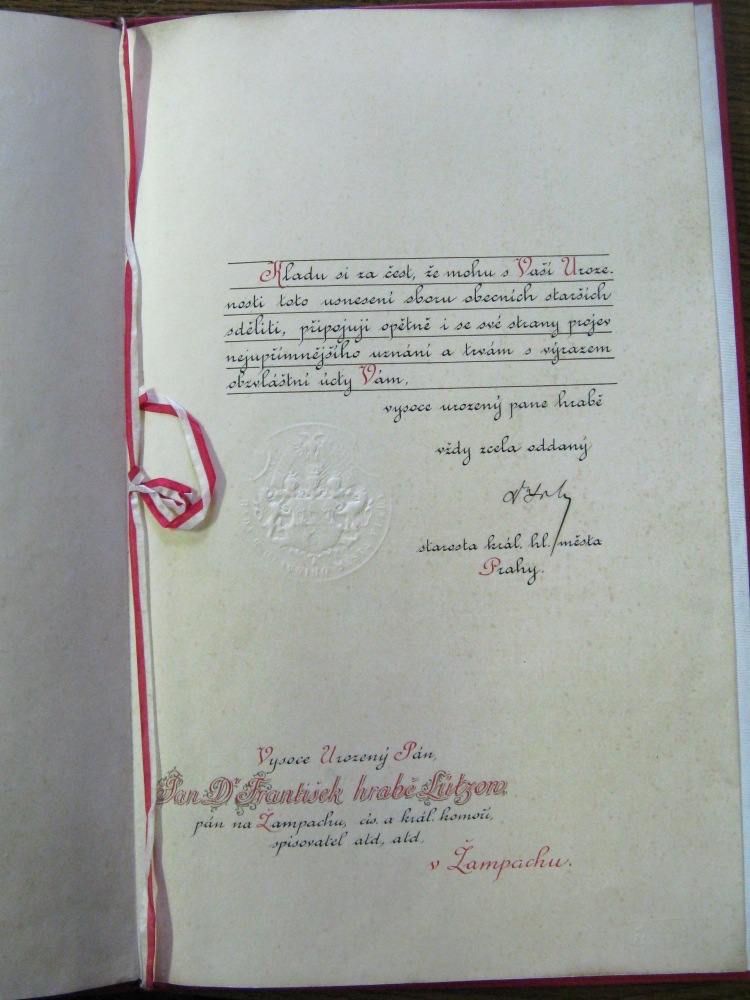 Kladu si za čest, že mohu s Vaší Uroze-
nosti toto usnesení sboru obecních starších
sděliti, připojuji opětně i se své strany projev
nejupřímnějšího uznání a trvám s výrazem
obzvláštní úcty Vám,
vysoce urozený pane hrabě
vždy zcela oddaný
starosta král. hl. města
Prahy.
Vysoce Urozený Pán,
Pan Dr František hrabě Lützow
pán na Žampachu, cís. a král. komoří,
spisovatel atd, atd.
v Žampachu.